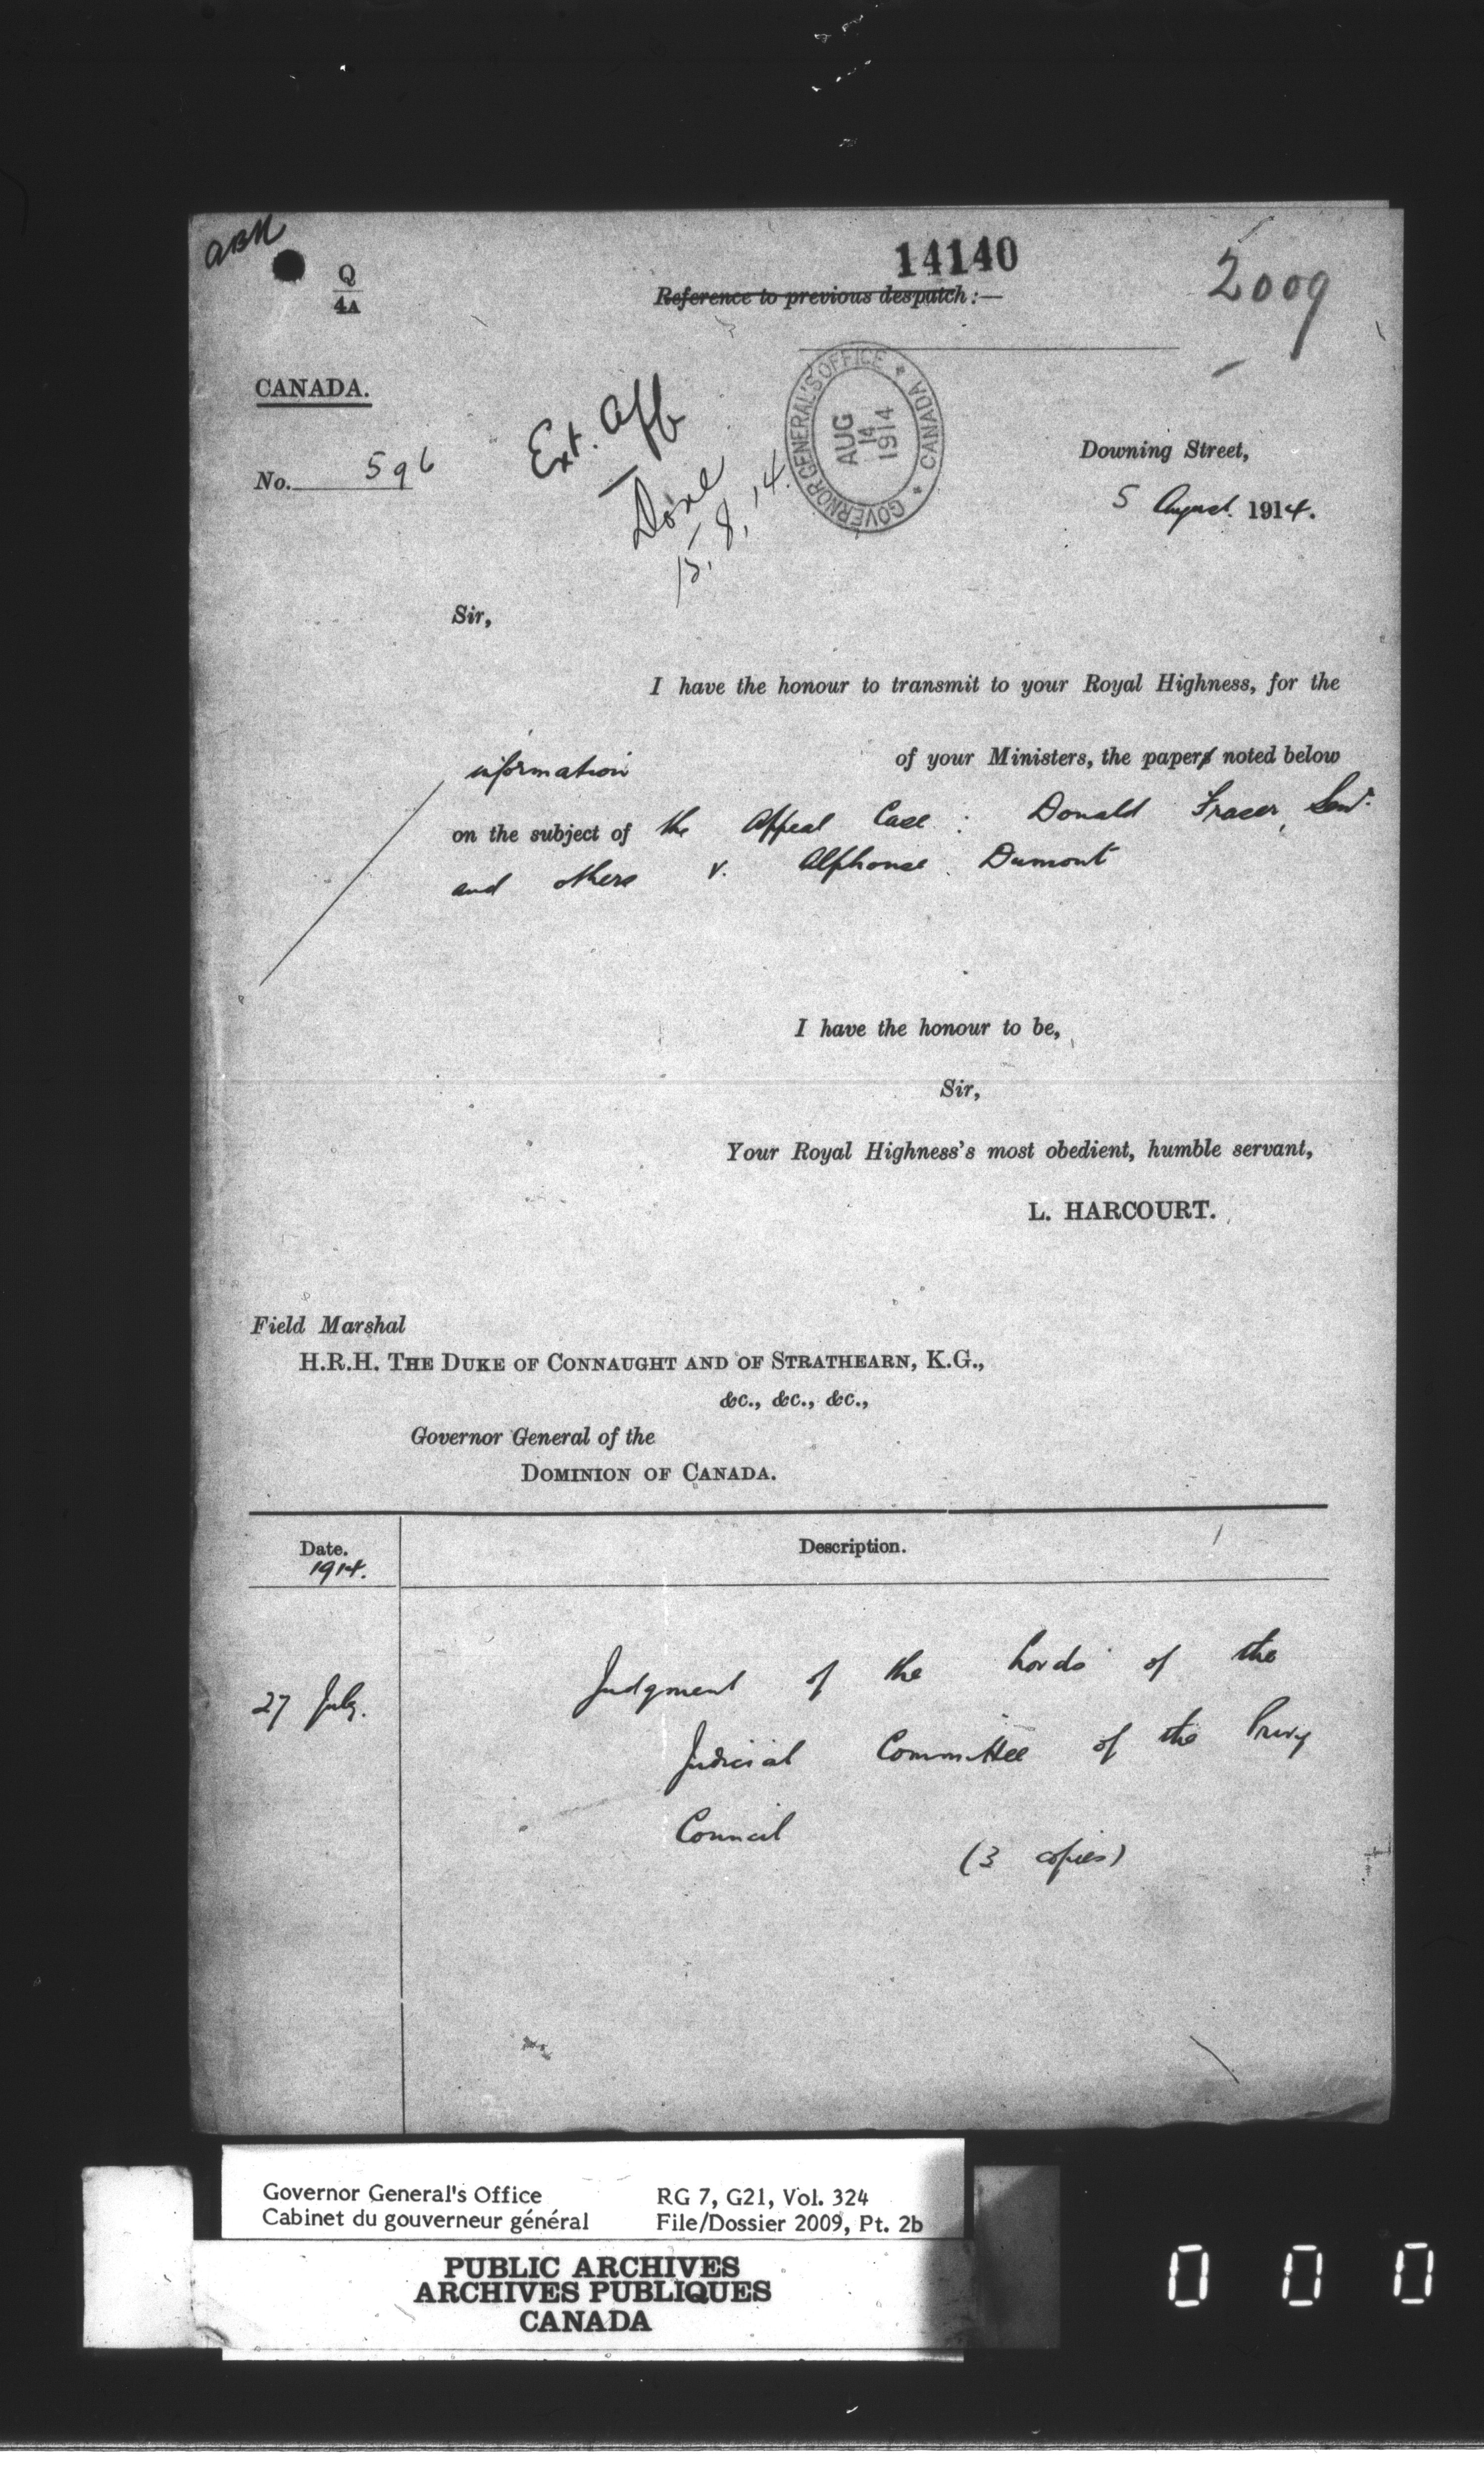 ABM
14140
2009
Q
4A
Reference to previous despatch:—
CANADA.
GOVERNOR GENERAL'S OFFICE * CANADA *
AUG
14
1914
Ext. Aff
Done
15.8.'14.
No. 596
Downing Street,
5 August. 1914.
Sir,
I have the honour to transmit to your Royal Highness, for the
information of your Ministers, the paper noted below
on the subject of the Appeal Case: Donald Fraser, Senr.
and others v. Alphonse Dumont
I have the honour to be,
Sir,
Your Royal Highness's most obedient, humble servant,
L. HARCOURT.
Field Marshal
H.R.H. THE DUKE OF CONNAUGHT AND OF STRATHEARN, K.G.,
&c., &c., &c.,
Governor General of the
DOMINION OF CANADA.
Date. Description.
1914.
27 July. Judgment of the Lords of the
Judicial Committee of the Privy
Council
(3 copies)
Governor General's Office RG 7, G21, Vol. 324
Cabinet du gouverneur général File/Dossier 2009, Pt. 2b
PUBLIC ARCHIVES
ARCHIVES PUBLIQUES
CANADA
0 0 0